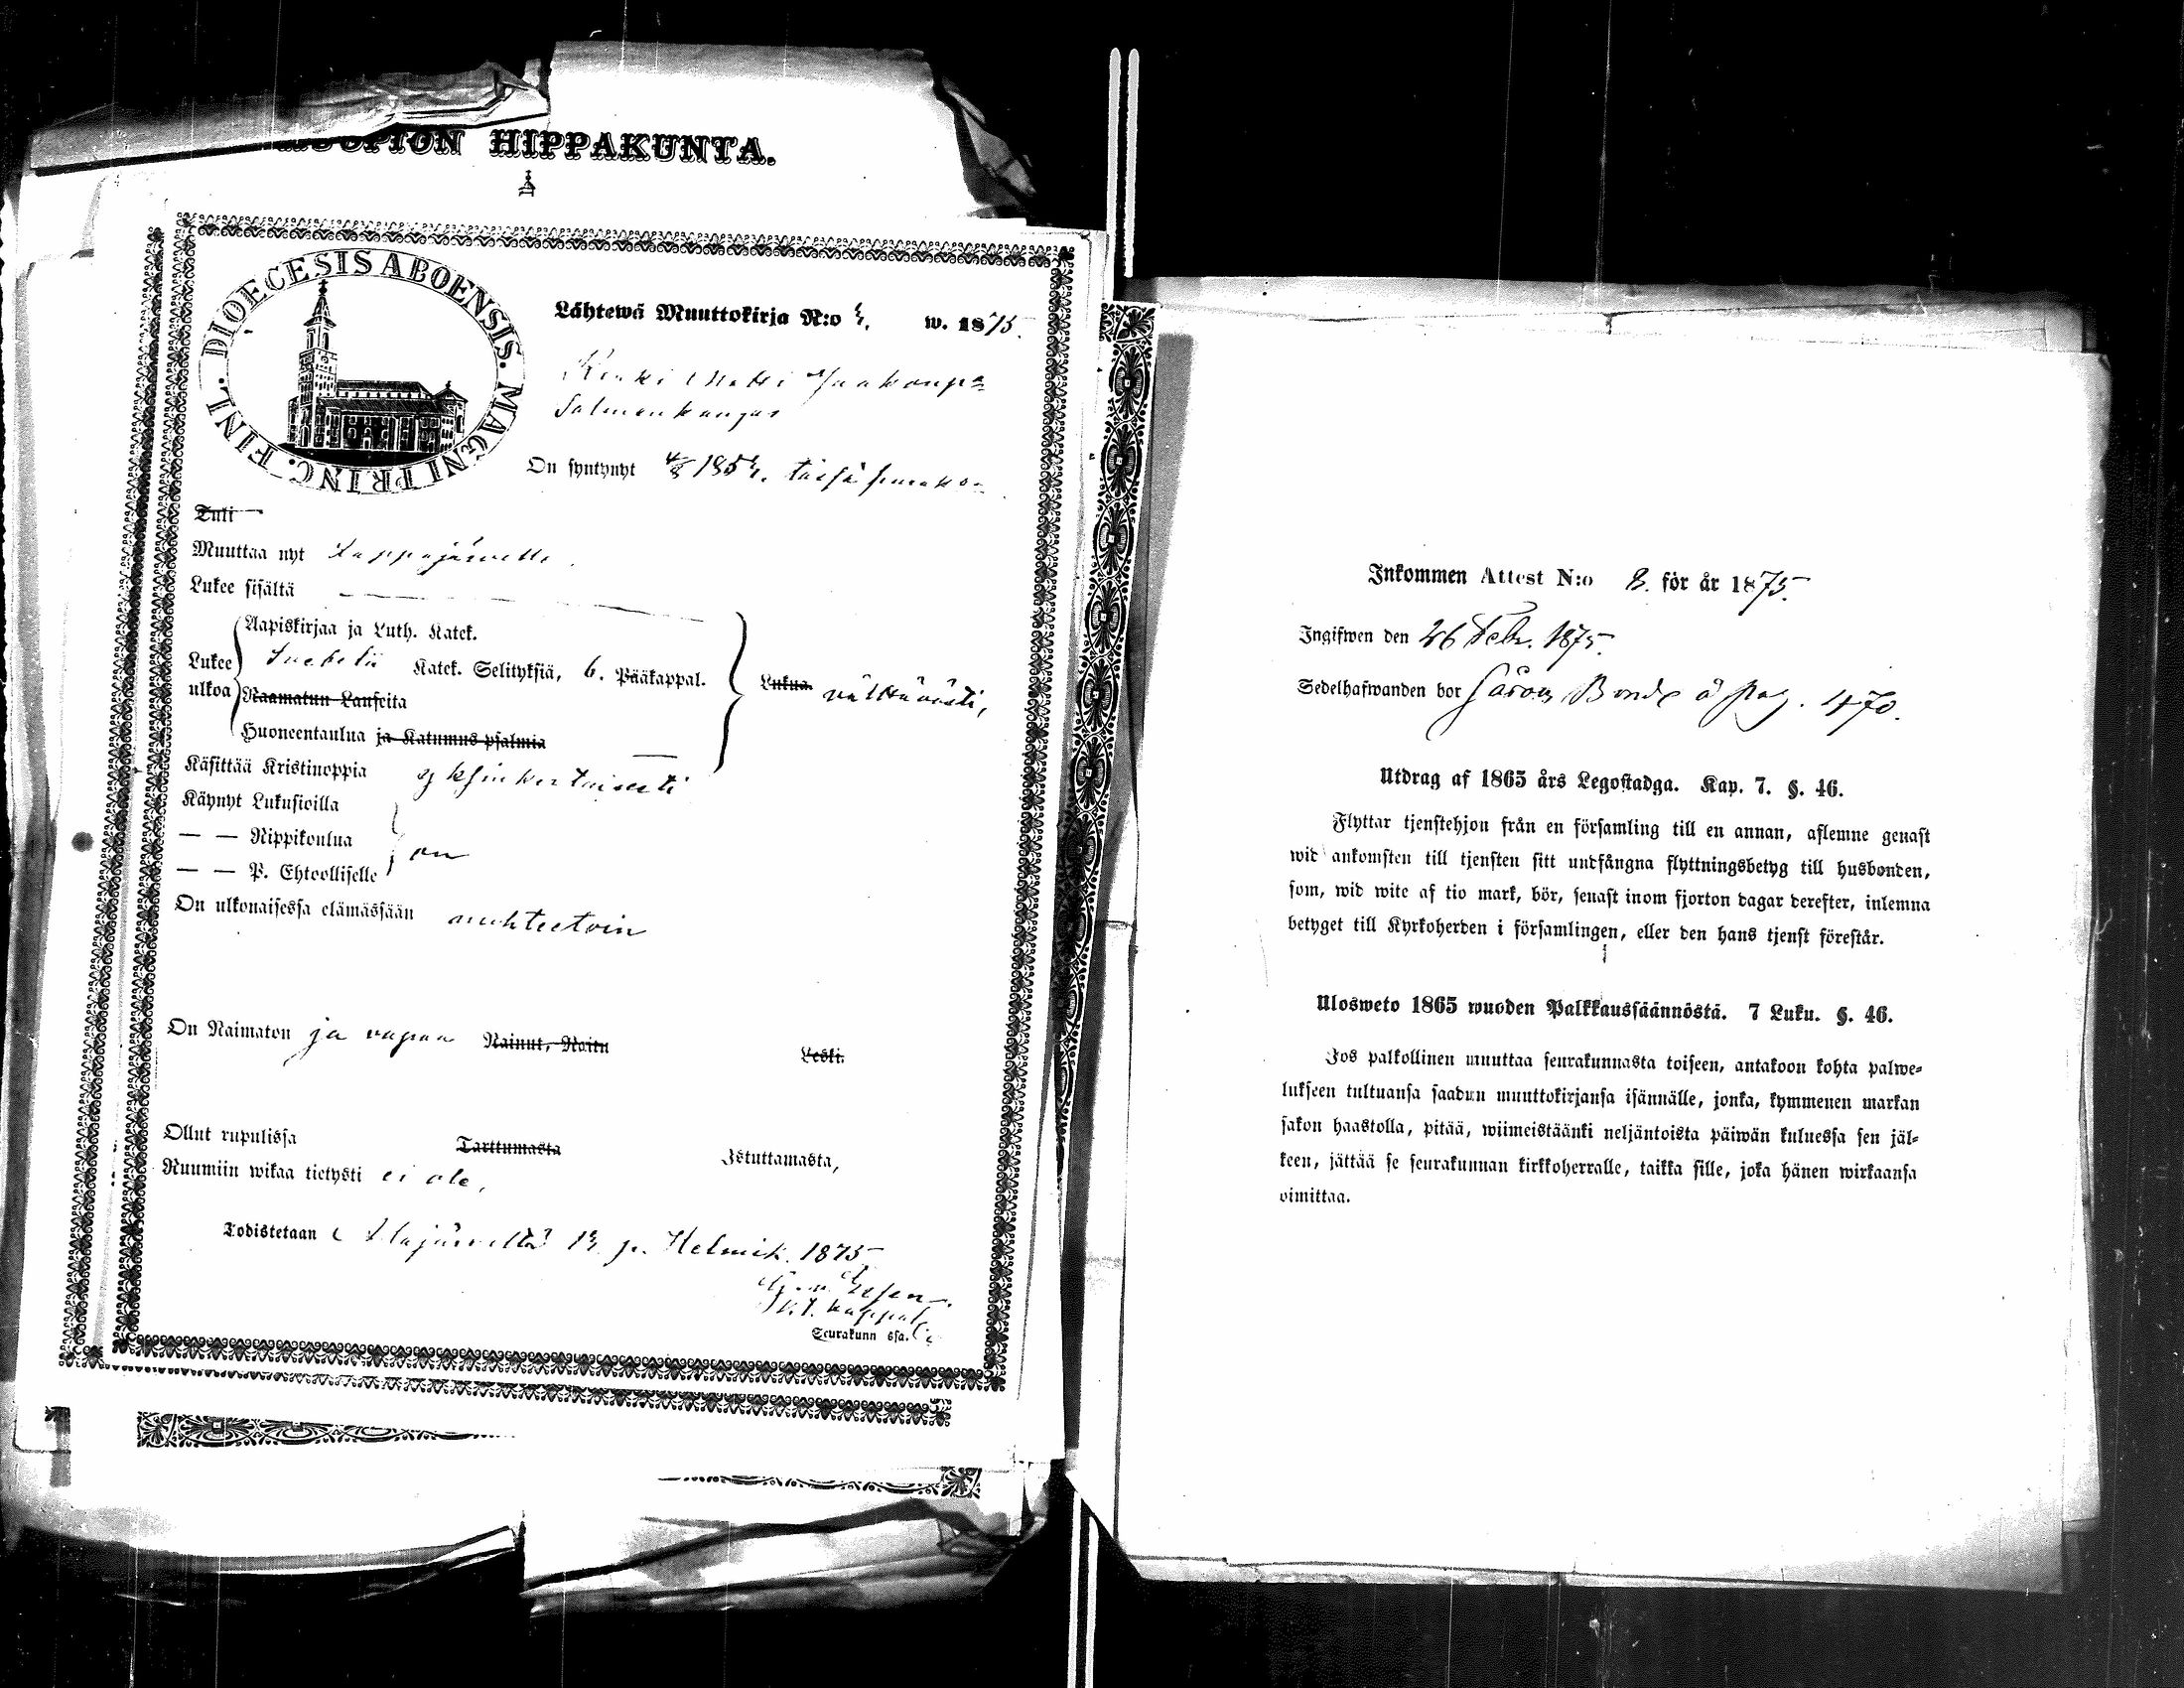 KUOPION HIPPAKUNTA.
DIOECESIS ABOENSIS. MAGNI PRINC. FINL.
Lähtewä Muuttokirja N:o w. 1875.
Renki Matti Jaakonp.
Salmenkangas
On syntynyt 185 tässä seurak
Tuli
Muuttaa nyt Lappajärwelle.
Lukee sisältä
Aapiskirjaa ja Luth. Katek.
Lukee ulkoa Swebelii Katek. Selityksiä, 6. Pääkappal. Lukua. välttävästi,
Raamatun Lauseita
Huoneentaulua ja Katumus psalmia
Käsittää Kristinoppia yksinkertaisesti
Käynyt Lukusioilla
— — Rippikoulua
— — P. Ehtoolliselle on
On ulkonaisessa elämässään nuhteetoin
On Naimaton ja vapaa Nainut, Naitu Leski.
Ollut rupulissa Tarttumasta Istuttamasta,
Ruumiin wikaa tietysti ei ole,
Todistetaan Alajärveltä p. Helmik. 1875
v. Essen
v.t. kappal
Seurakunn ssa.
Inkommen Attest N:o 8. för år 1875.
Ingifwen den 26 Febr. 1875.
Sedelhafwanden bor Bonde å pag. 470.
Utdrag af 1865 års Legostadga. Kap. 7. §. 46.
Flyttar tjenstehjon från en församling till en annan, aflemne genast
wid ankomsten till tjensten sitt undfångna flyttningsbetyg till husbonden,
som, wid wite af tio mark, bör, senast inom fjorton dagar derefter, inlemna
betyget till Kyrkoherden i församlingen, eller den hans tjenst förestår.
Ulosweto 1865 wuoden Palkkaussäännöstä. 7 Luku. §. 46.
Jos palkollinen muuttaa seurakunnasta toiseen, antakoon kohta palwe-
lukseen tultuansa saadun muuttokirjansa isännälle, jonka, kymmenen markan
sakon haastolla, pitää, wiimeistäänki neljäntoista päiwän kuluessa sen jäl-
keen, jättää se seurakunnan kirkkoherralle, taikka sille, joka hänen wirkaansa
oimittaa.